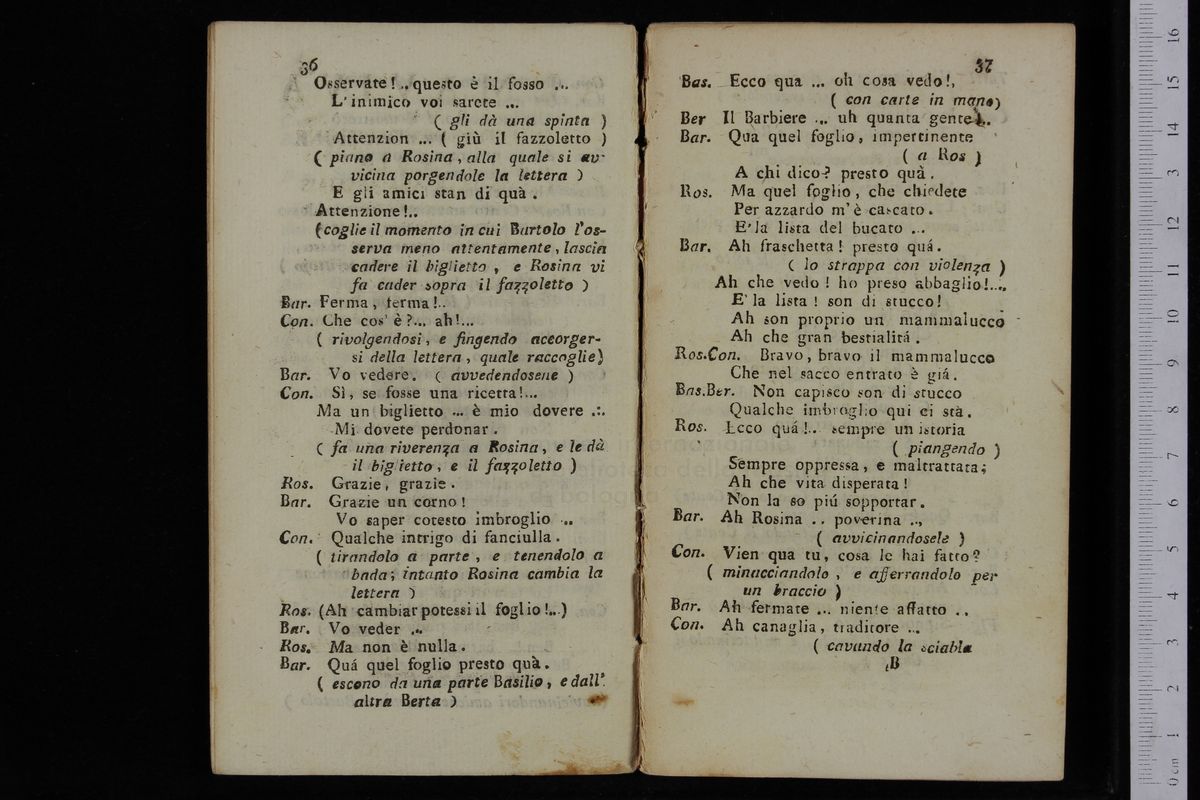 36
Osservate!.. questo è il fosso ...
L'inimico voi sarete ...
( gli dà una spinta )
Attenzion ... ( giù il fazzoletto )
( piano a Rosina, alla quale si av-
vicina porgendole la lettera )
E gli amici stan di quà.
Attenzione!..
(coglie il momento in cui Bartolo l'os-
serva meno attentamente, lascia
cadere il biglietto, e Rosina vi
fa cader sopra il fazzoletto )
Bar. Ferma, ferma!..
Con. Che cos' è?... ah!...
( rivolgendosi, e fingendo accorger-
si della lettera, quale raccoglie)
Bar. Vo vedere. ( avvedendosene )
Con. Sì, se fosse una ricetta!...
Ma un biglietto ... è mio dovere ...
Mi dovete perdonar.
( fa una riverenza a Rosina, e le dà
il biglietto, e il fazzoletto )
Ros. Grazie, grazie.
Bar. Grazie un corno!
Vo saper cotesto imbroglio ...
Con. Qualche intrigo di fanciulla.
( tirandolo a parte, e tenendolo a
bada; intanto Rosina cambia la
lettera )
Ros. (Ah cambiar potessi il foglio!...)
Bar. Vo veder ..
Ros. Ma non è nulla.
Bar. Quá quel foglio presto quà.
( escono da una parte Basilio, e dall'
altra Berta )
37
Bas. Ecco qua ... oh cosa vedo!,
( con carte in mano)
Ber Il Barbiere ... uh quanta gente!..
Bar. Qua quel foglio, impertinente
( a Ros )
A chi dico? presto quà.
Ros. Ma quel foglio, che chiedete
Per azzardo m'è cascato.
E'la lista del bucato ...
Bar. Ah fraschetta! presto quá.
( lo strappa con violenza )
Ah che vedo! ho preso abbaglio!....
E'la lista! son di stucco!
Ah son proprio un mammalucco
Ah che gran bestialitá.
Ros.Con. Bravo, bravo il mammalucco
Che nel sacco entrato è giá.
Bas.Ber. Non capisco son di stucco
Qualche imbroglio qui ci stà.
Ros. Ecco quá!.. sempre un istoria
( piangendo )
Sempre oppressa, e maltrattata;
Ah che vita disperata!
Non la so piú sopportar.
Bar. Ah Rosina .. poverina ..,
( avvicinandosele )
Con. Vien qua tu, cosa le hai fatto?
( minacciandolo, e afferrandolo per
un braccio )
Bar. Ah fermate ... niente affatto ..
Con. Ah canaglia, traditore ...
( cavando la sciabla
B